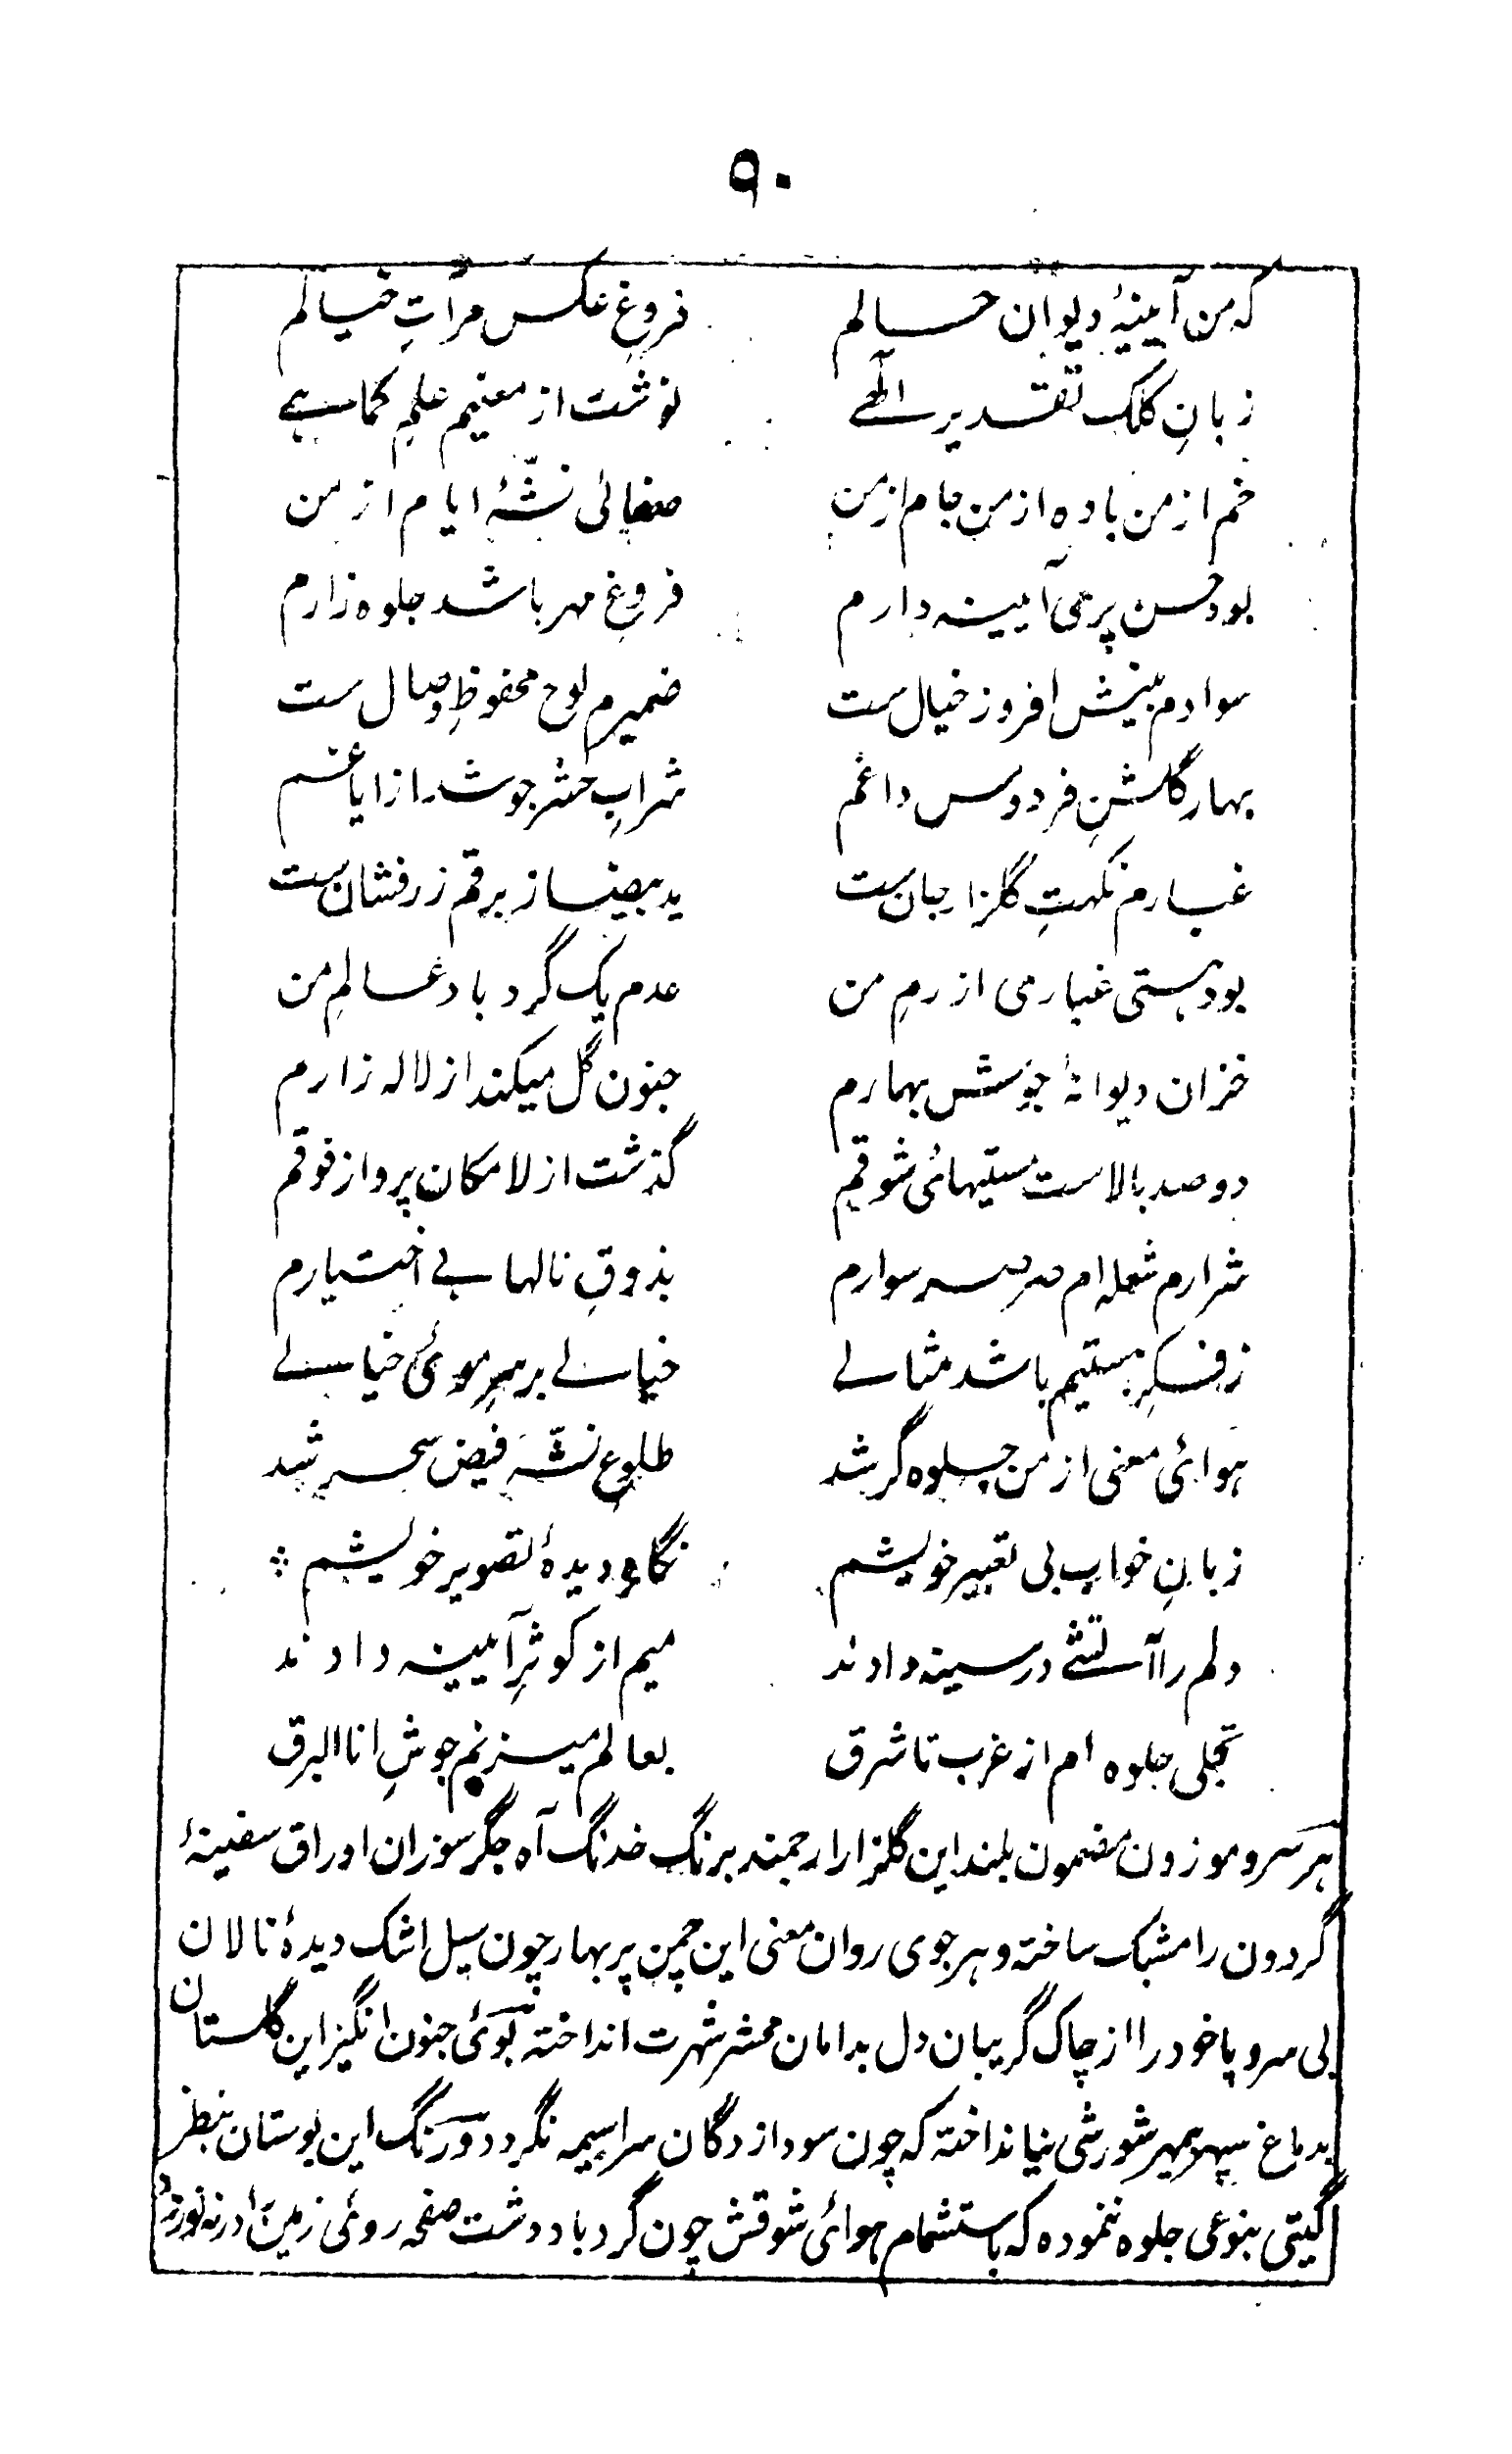 ۹۰
که من آیینهٔ دیوان حسالم فروغِ عکس مرآتِ خیالم
زبانِ کلک تقدیر الٰهے نوشت از معنیم علمِ کماہے
خم از من باده از من جام از من صفائی نشّهٔ ایام از من
بود حسن پری آیینه دارم فروغِ مهر باشد جلوه زارم
سوادم بینش افروز خیال ست ضمیرم لوح محفوظِ وصال ست
بهار گلشنِ فردوس داغم شرابِ حشر جوشد از ایاغم
غبارم نکهتِ گلزار جان ست ید بیضا ز برقم زرفشان ست
بود هستی غباری از رمِ من عدم یک گردباد عالمِ من
خزان دیوانهٔ جوشش بهارم جنون گل میکند از لاله زارم
دو صد بالاست مستیهائی شوقم گذشت از لامکان پرواز فوقم
شرارم شعله ام صرصر سوارم بذوقِ نالها بے اختیارم
ز فکرِ هستیم باشد مثالے خیالے بر سرِ موئی خیالے
هوائی معنی از من جلوه گر شد طلوعِ نشّه فیض سحر شد
زبانِ خواب بی تعبیر خویشم نگاهِ دیدهٔ تصویر خویشم ⁘
دلم را آتشے در سینه دادند میم از کوثرِ آیینه دادند
تجلی جلوه ام از غرب تا شرق بعالم میزنم جوشِ انا البرق
هر سرو موزون مضمون بلند این گلزار ارجمند برنگ خدنگ آه جگر سوزان اوراق سفینهٔ
گردون را مشبک ساخته و هر جوی روان معنی این چمن پر بهار چون سیل اشک دیدهٔ نالان
بی سر و پا خود را از چاک گریبان دل بدامان محشر شهرت انداخته بوئی جنون انگیز این گلستان
بدماغ سپهر بمهر شورشی نیانداخته که چون سودازدگان سراسیمه نگردد و رنگ این بوستان بنظر
گیتی بنوعی جلوه ننموده که باستشمام هوائی شوقش چون گردباد دشت صفحه روئی زمین را در نه نوردد